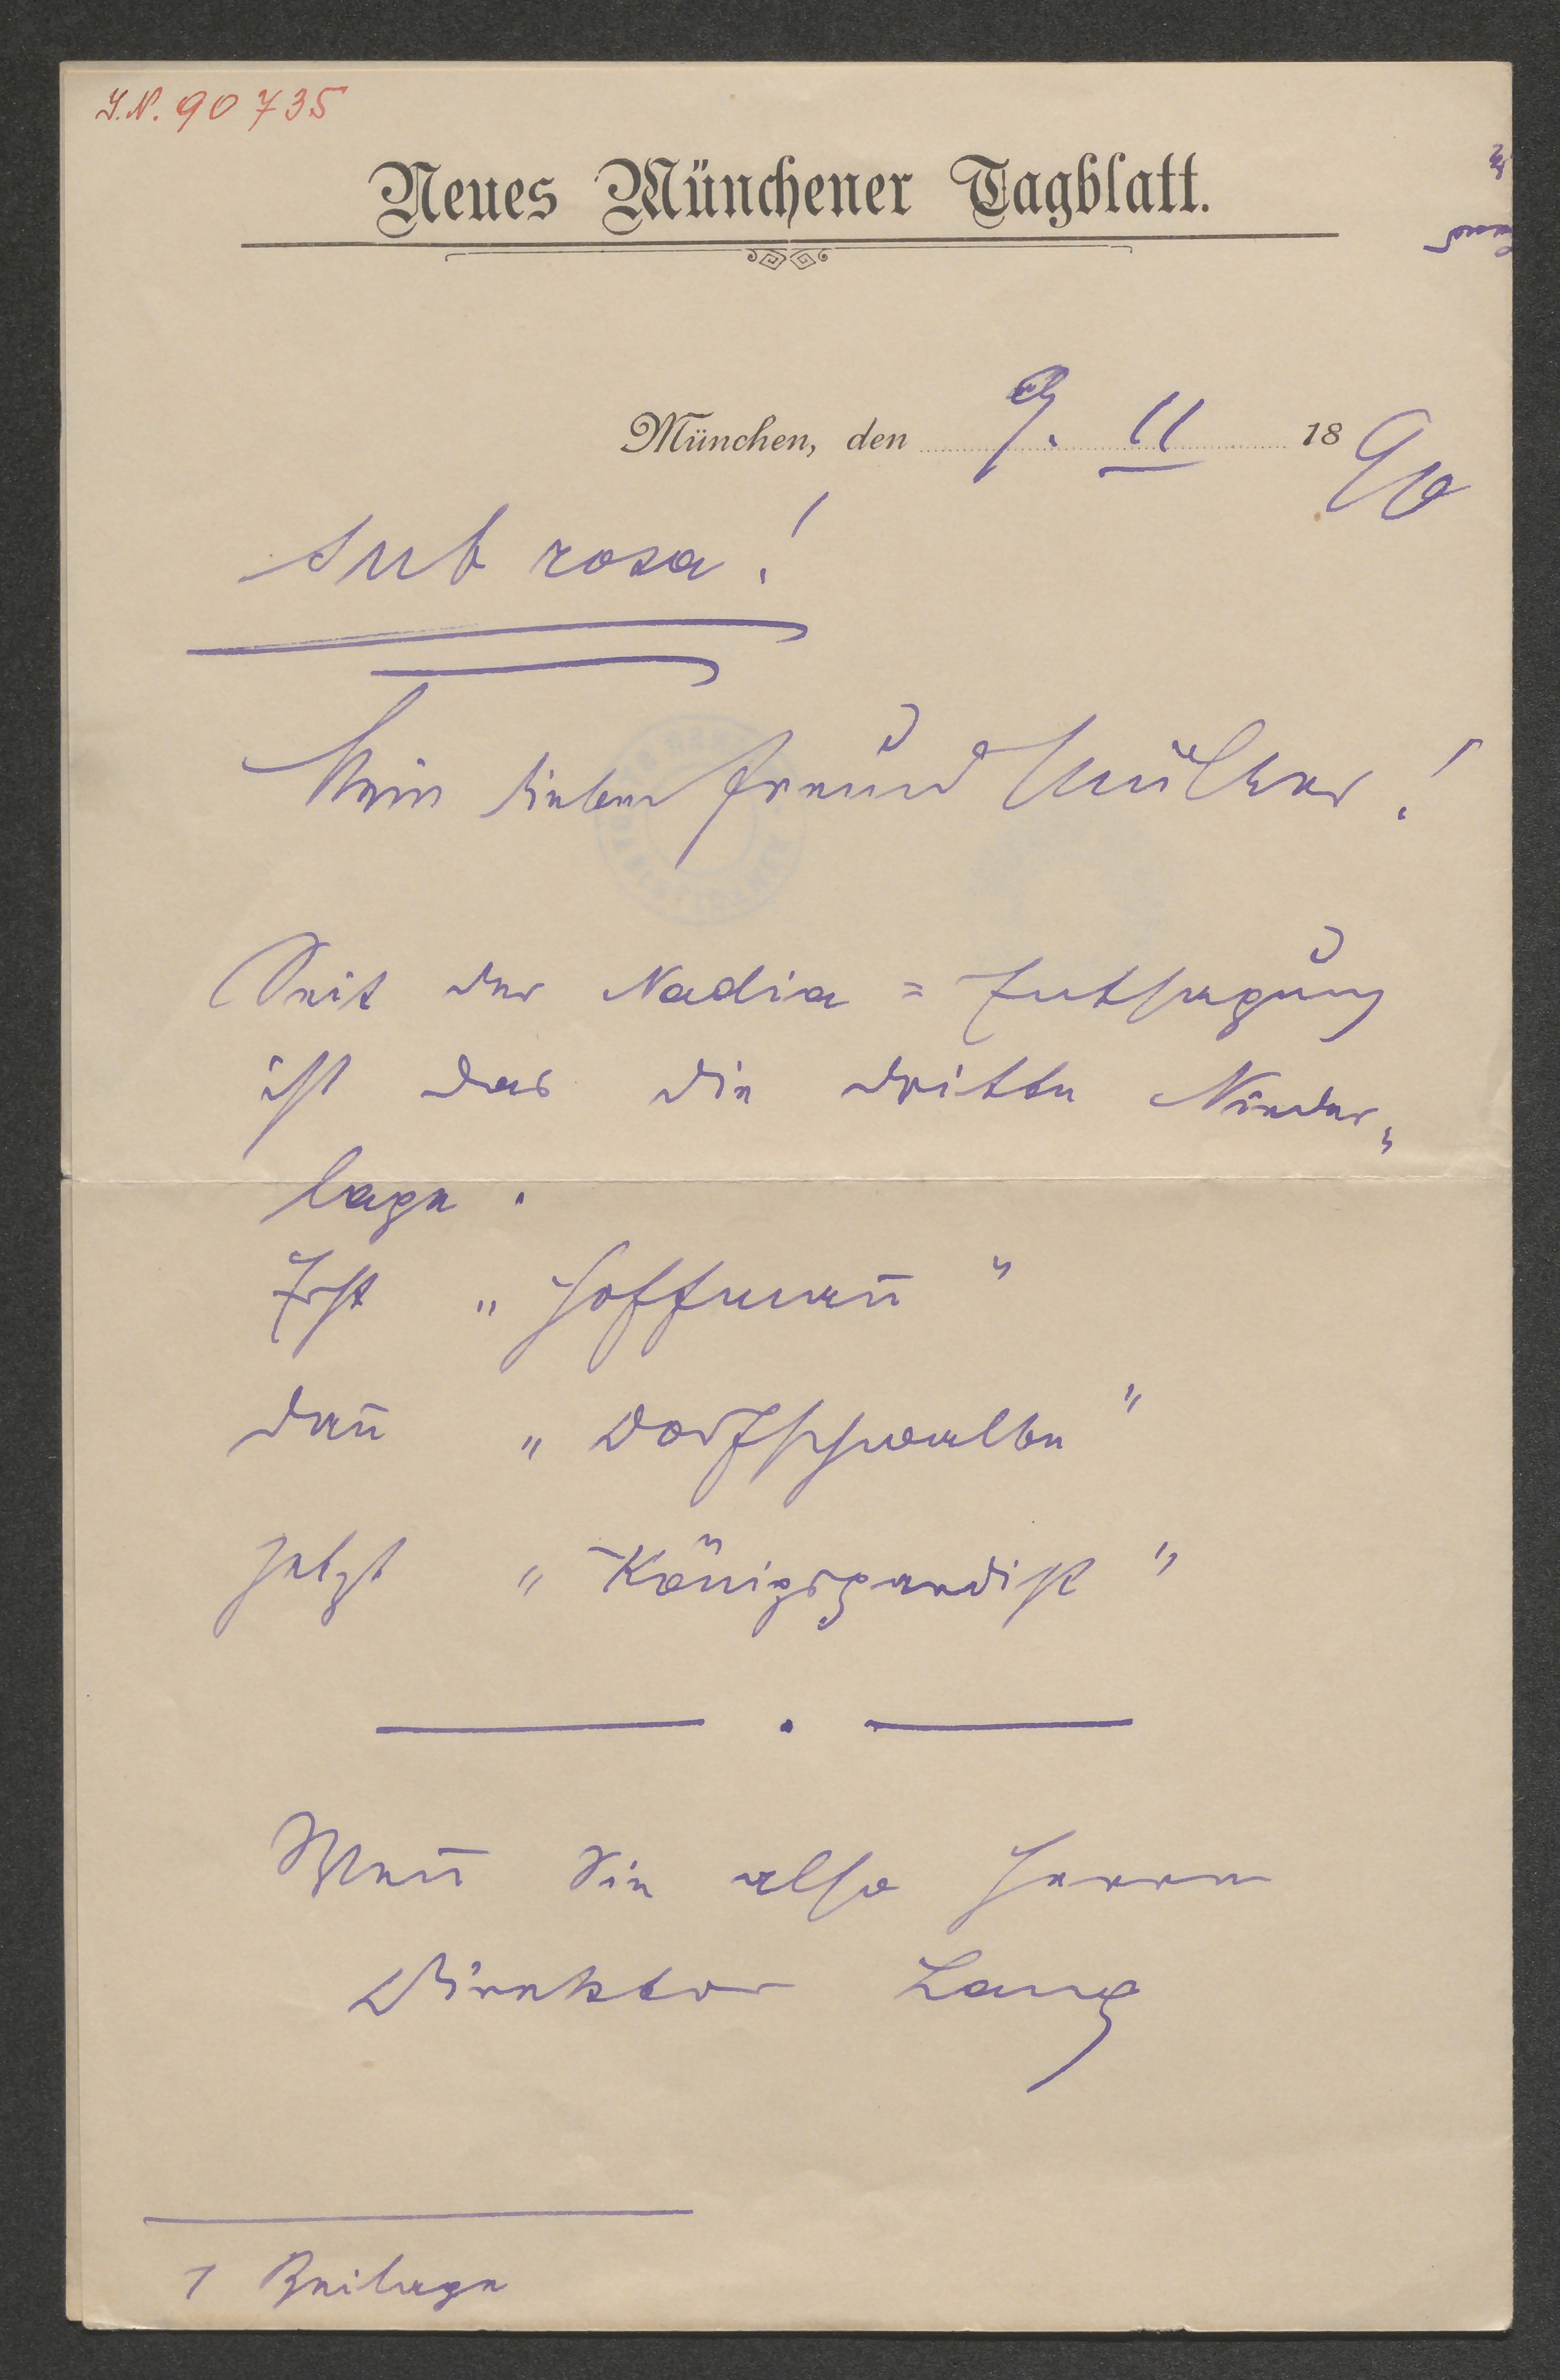 I.N. 90735
Neues Münchener Tagblatt.
München, den 9. 11 1890
sub rosa!
Mein lieber Freund Müller!
Seit der Nadia = Entsagung
ist das die dritte Nieder„
lage.
Erst „Hoffmann̄"
dan̄ „Dorfschwalbe"
jetzt „Königsgardist"
Wen̄ Sie also Herrn
Direktor Lang
1 Beilage